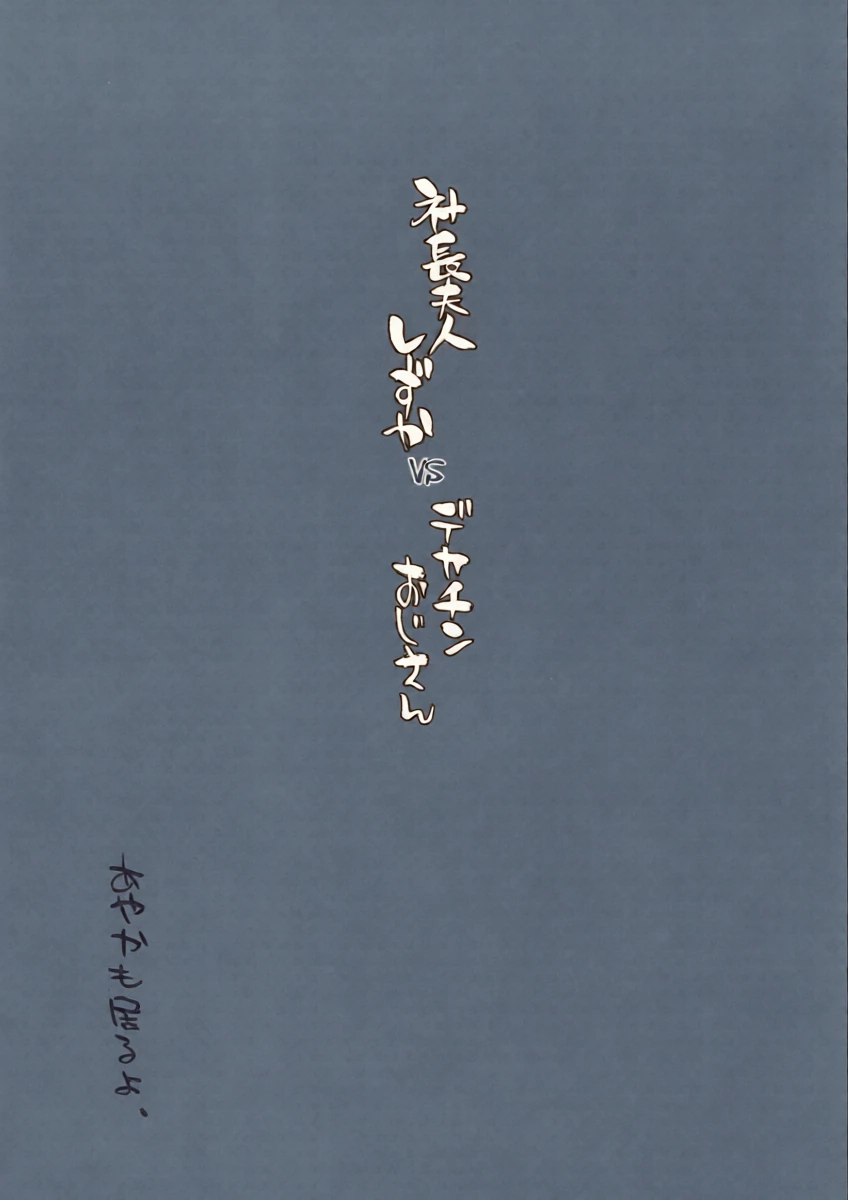 社長夫人
しずか
VS
デカチン
おじさん
あやチャ出るよ。